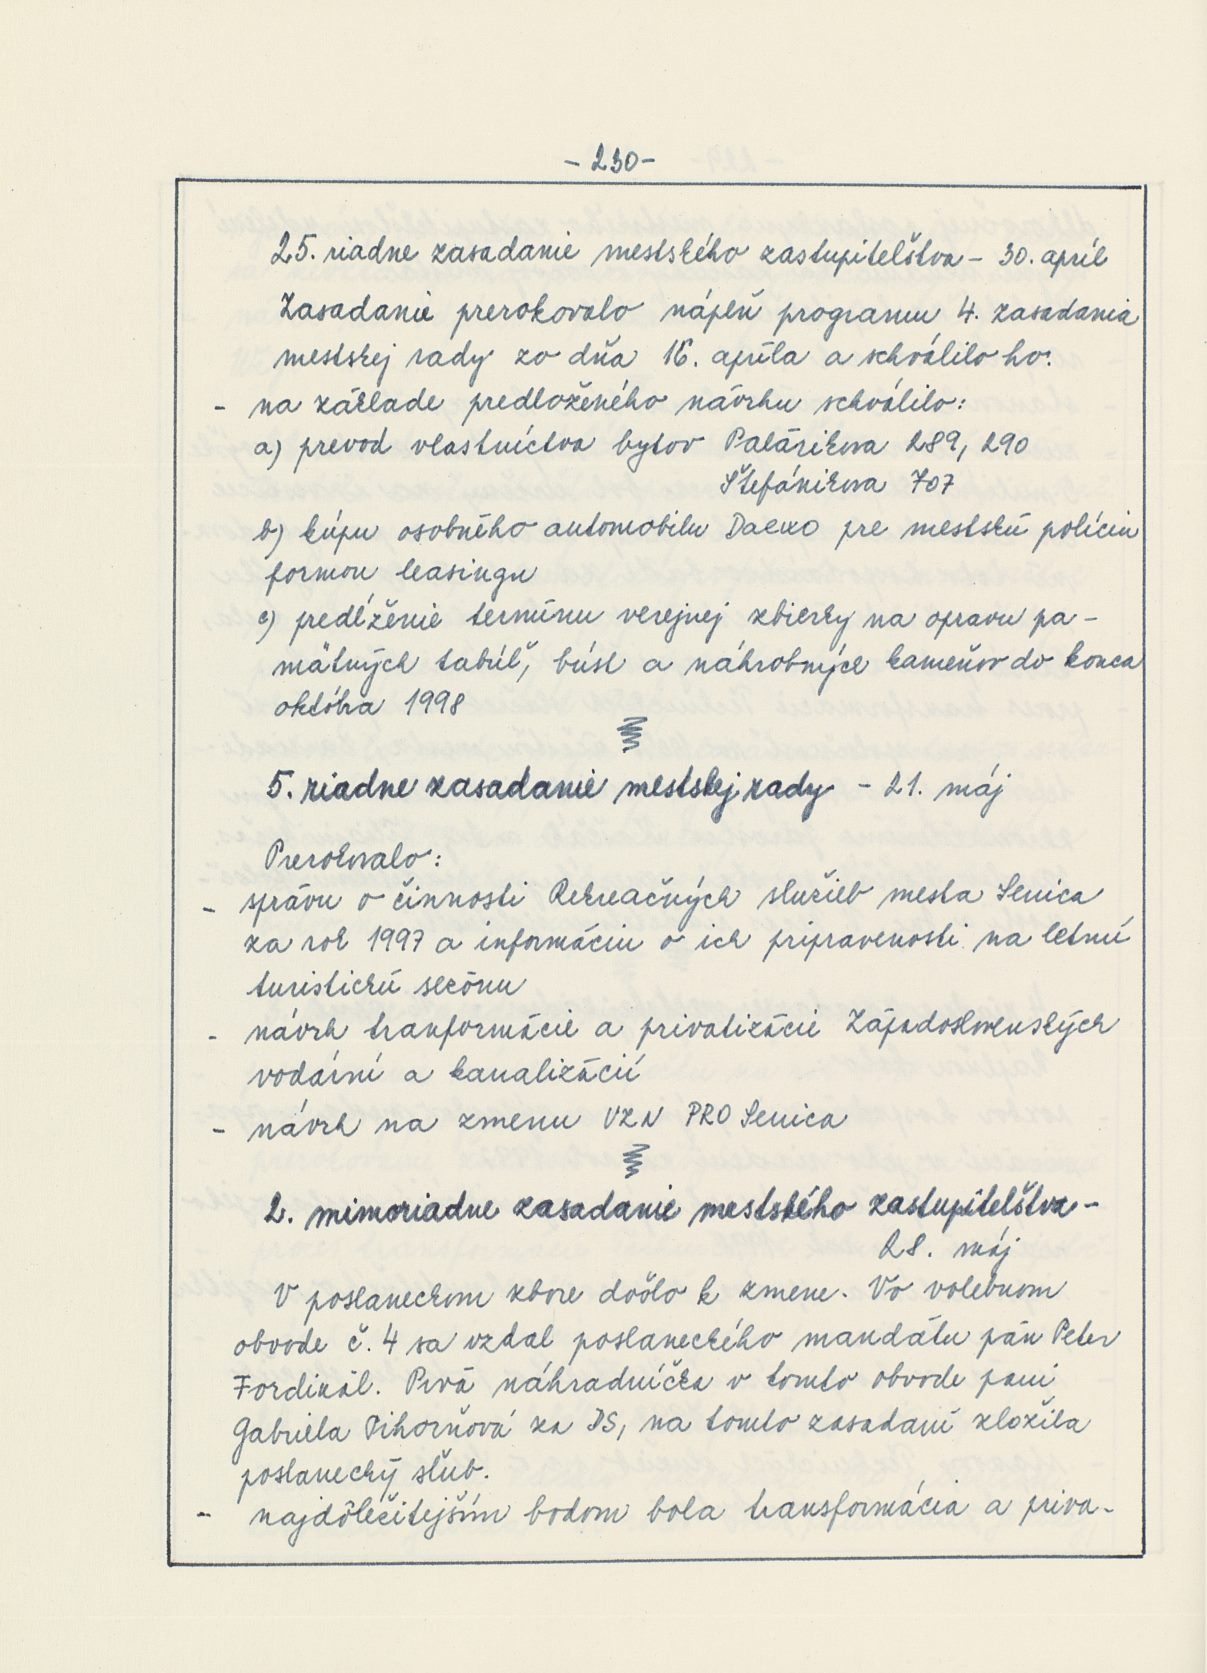 - 230 -
25. riadne zasadanie mestského zastupiteľstva - 30. apríl
Zasadanie prerokovalo náplň programu 4. zasadania
mestskej rady zo dňa 16. apríla a schválilo ho.
- na základe predloženého návrhu schválilo:
a) prevod vlastníctva bytov Palárikova 289, 290
Štefánikova 707
b) kúpu osobného automobilu Daewo pre mestskú políciu
formou leasingu
c) predĺženie termínu verejnej zbierky na opravu pa-
mätných tabúľ, búst a náhrobných kameňov do konca
októbra 1998
5. riadne zasadanie mestskej rady - 21. máj
Prerokovalo:
- správu o činnosti Rekreačných služieb mesta Senica
za rok 1997 a informáciu o ich pripravenosti na letnú
turistickú sezónu
- návrh tranformácie a privatizácie Západoslovenských
vodární a kanalizácií
- návrh na zmenu VZN PRO Senica
2. mimoriadne zasadanie mestského zastupiteľstva -
28. máj
V poslaneckom zbore došlo k zmene. Vo volebnom
obvode č. 4 sa vzdal poslaneckého mandátu pán Peter
Fordinál. Prvá náhradníčka v tomto obvode pani
Gabriela Tihorňová za DS, na tomto zasadaní zložila
poslanecký sľub.
- najdôležitejším bodom bola transformácia a priva-